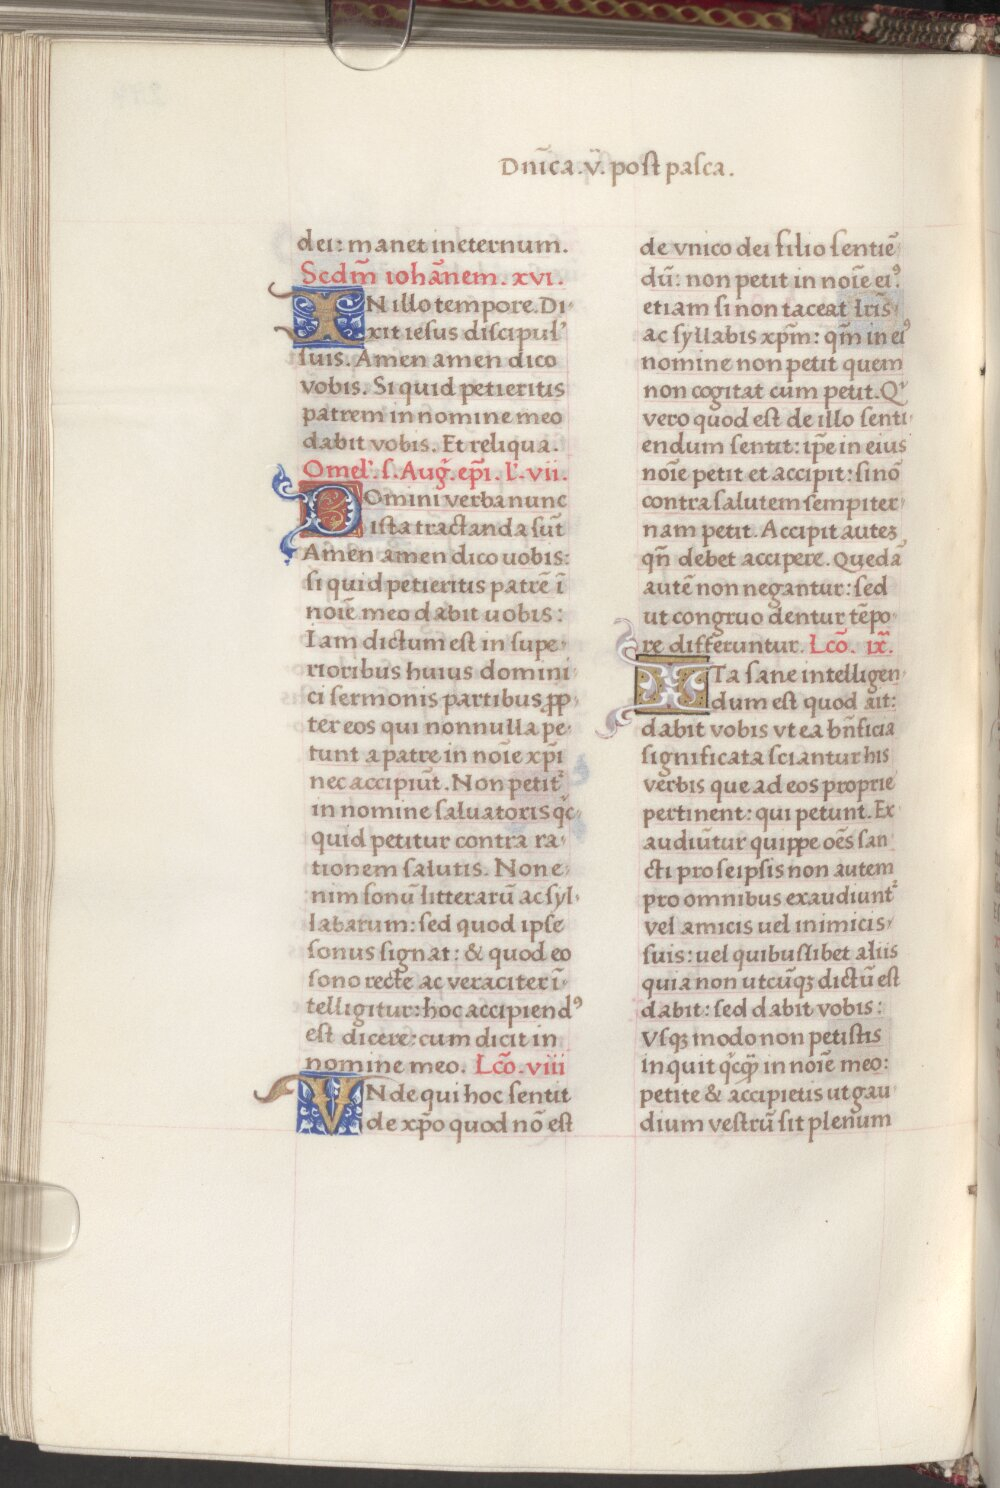 Dnı̅ca.v̈. post pasca.
dei: manet ineternum.
Scdm̅ iohānem. xvi.
IN illo tempore. Di-
xit iesus discipul'
suis. Amen amen dico
vobis. Si quid petieritis
patrem in nomine meo
dabit vobis. Et reliqua.
Omel'. s. Aug̅. ep̅i. l'. vii.
Domini verba nunc
ista tractanda su̅t
Amen amen dico uobis:
si quid petieritis patre̅ i̅
noi̅e meo dabit uobis:
Iam dictum est in supe-
rioribus huius domini-
ci sermonis partibus ꝓp-
ter eos qui nonnulla pe-
tunt a patre in noi̅e xp̅i
nec accipiu̅t. Non petit᷑
in nomine saluatoris qc̅-
quid petitur contra ra-
tionem salutis. Non e-
nim sonu̅ litteraru̅ ac syl-
labarum: sed quod ipse
sonus signat: & quod eo
sono recte ac veraciter i̅-
telligitur: hoc accipiendꝰ
est dicere: cum dicit in
nomine meo. Lco̅. viii
VNde qui hoc sentit
de xp̅o quod no̅ est
de vnico dei filio sentie̅-
du̅: non petit in noi̅e eiꝰ:
etiam si non taceat lr̅is
ac syllabis xp̅m: qm̅ in eiꝰ
nomine non petit quem
non cogitat cum petit. Qͥ
vero quod est de illo senti-
endum sentit: ip̅e in eius
noi̅e petit et accipit: si no̅
contra salutem sempiter-
nam petit. Accipit auteꝫ,
qn̅ debet accipere. Queda̅
aute̅ non negantur: sed
ut congruo dentur te̅po-
re differuntur. Lco̅. ix̅.
ITa sane intelligen-
dum est quod ait:
dabit vobis vt ea bn̅ficia
significata sciantur his
verbis que ad eos proprie
pertinent: qui petunt. Ex-
audiu̅tur quippe oe̅s san-
cti pro seipsis non autem
pro omnibus exaudiunt᷑
vel amicis uel inimicis-
suis: uel quibuslibet aliis
quia non utcu̅qꝫ dictu̅ est
dabit: sed dabit vobis:
Vsqꝫ modo non petistis
inquit qͥcꝙ̅ in noi̅e meo:
petite & accipietis ut gau-
dium vestru̅ sit plenum